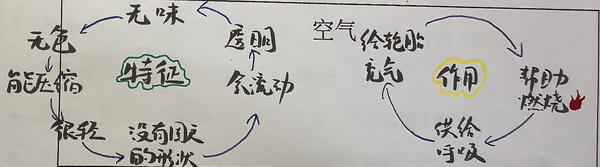 无味
无色
透明
空气
能压缩
特征
会流动
给轮胎
充气
作用
帮助
燃烧
很轻
没有固定
的形状
供给
呼吸